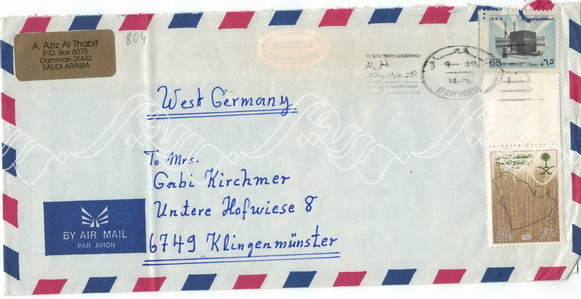 A. Aziz Al Thabit
P.O. Box 6075
Dammam 31442
SAUDI ARABIA
804
West Germany
To Mrs.
Gabi Kirchmer
Untere Hofwiese 8
6749 Klingenmünster
BY AIR MAIL
PAR AVION
DAMMAM
K.S.A.
65
٦٥